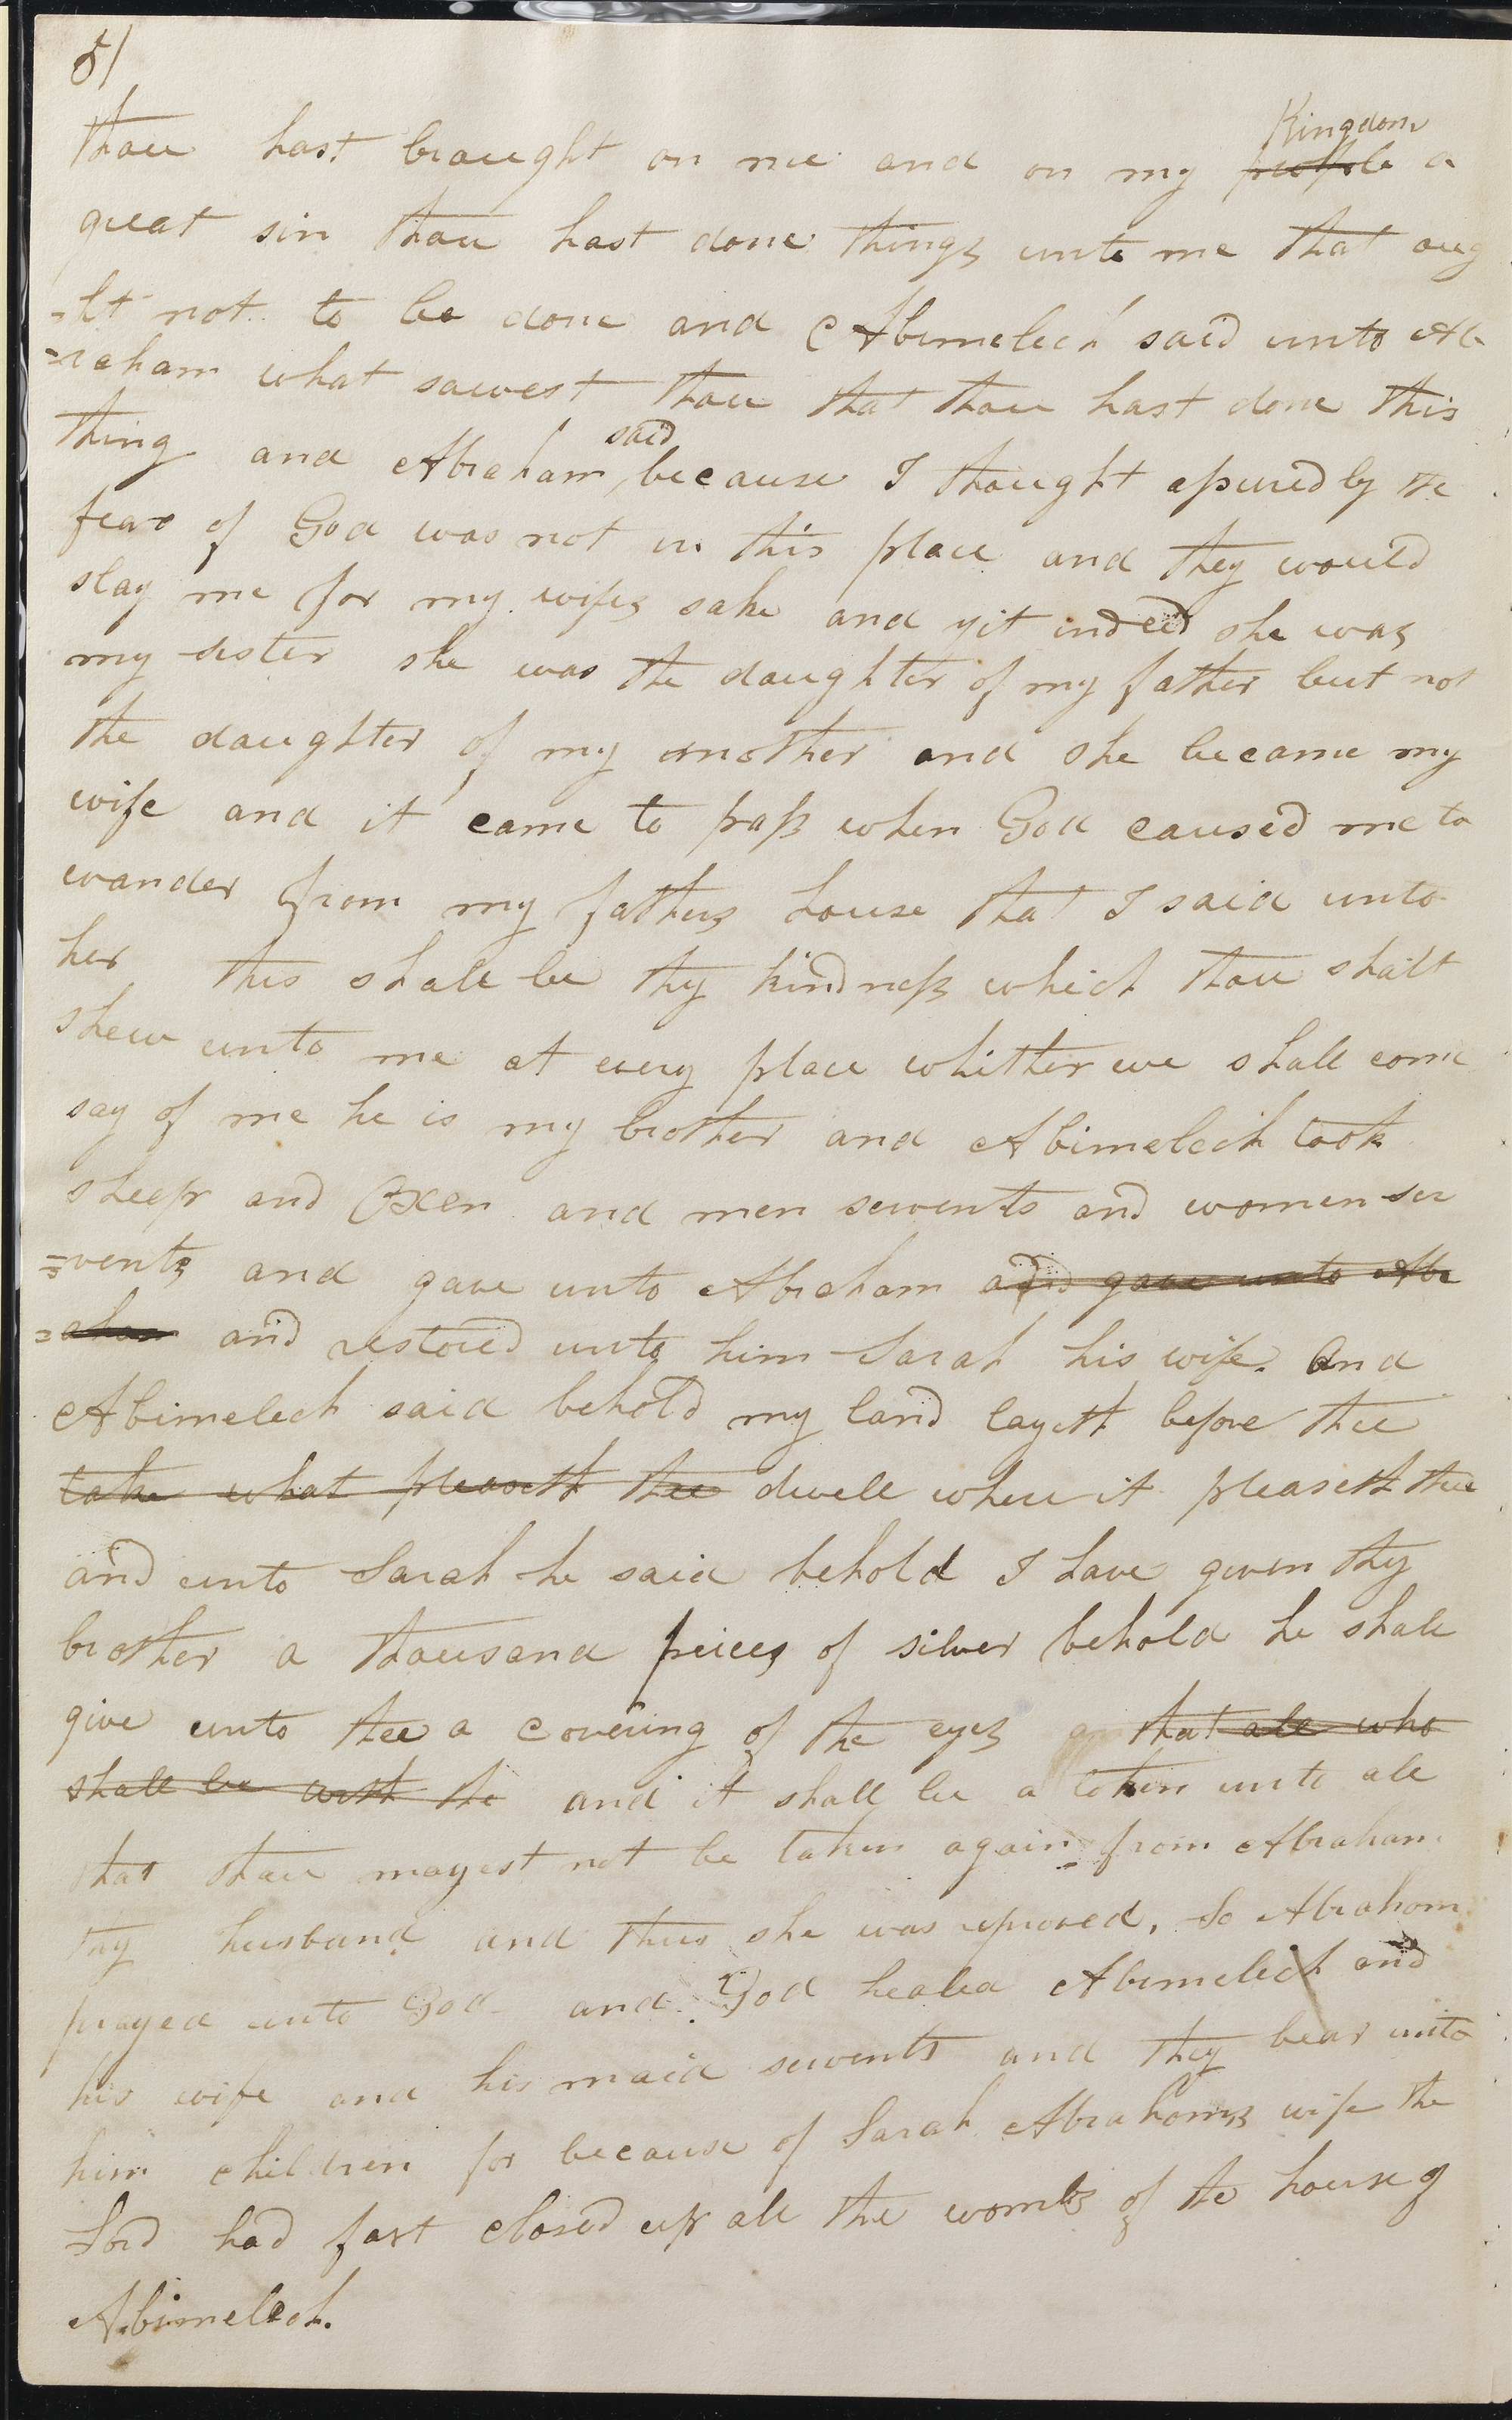 51
Kingdom
thou hast braught on me and on my people a
great sin thou hast done things unto me that oug
=ht not to be done and Abimelech said unto Ab
=raham what sawest thou that thou hast done this
said
thing and Abraham, because I thought assuredly the
fear of God was not in this place and they would
slay me for my wifes sake and yit indeed she was
my sister she was the daughter of my father but not
the daughter of my mother and she became my
wife and it came to pass when God caused me to
wander from my fathers house that I said unto
her this shall be thy kindness which thou shalt
shew unto me at every place whither we shall come
say of me he is my brother and Abimelech took
sheep and Oxen and men servents and women ser
=vents and gave unto Abraham and gave unto Abr
=aham and restored unto him Sarah his wife. And
Abimelech said behold my land layeth before thee
take what pleaseth thee dwell where it pleaseth thee
and unto Sarah he said behold I have given thy
brother a thousand peices of silver behold he shall
give unto thee a covering of the eyes that all who
shall be with the and it shall be a token unto all
that thou mayest not be taken again from Abraham
thy husband and thus she was reproved, So Abraham
prayed unto God and God healed Abimelech and
his wife and his maid servents and they bear unto
him children for because of Sarah Abrahams wife the
Lord had fast closed up all the wombs of the house of
Abimelech.